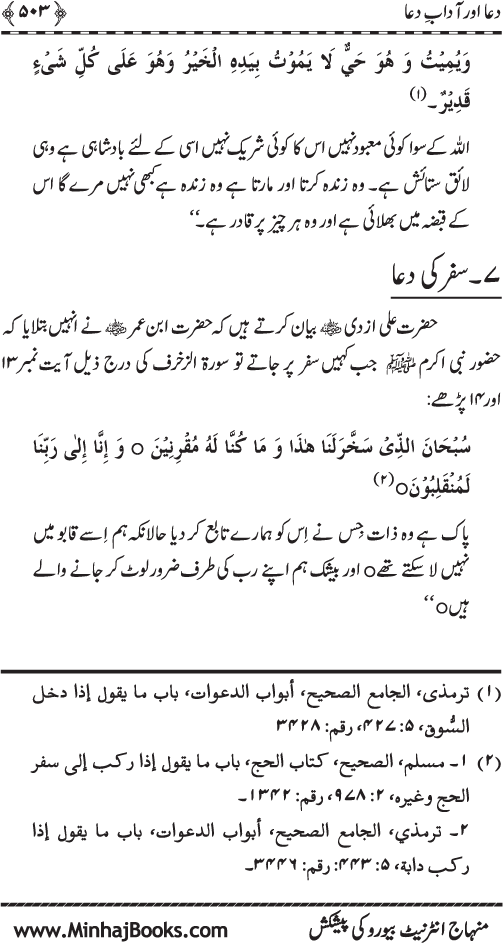 دعا اور آدابِ دعا ﴿۵۰۳﴾
وَيُمِيْتُ وَ هُوَ حَيٌّ لَا يَمُوْتُ بِيَدِهِ الْخَيْرُ وَهُوَ عَلَى كُلِّ شَىْءٍ
قَدِيْرٌ۔(۱)
اللہ کے سوا کوئی معبود نہیں اس کا کوئی شریک نہیں اسی کے لئے بادشاہی ہے وہی
لائق ستائش ہے۔ وہ زندہ کرتا اور مارتا ہے وہ زندہ ہے کبھی نہیں مرے گا اس
کے قبضہ میں بھلائی ہے اور وہ ہر چیز پر قادر ہے۔‘‘
۷۔ سفر کی دعا
حضرت علی ازدی ﷺ بیان کرتے ہیں کہ حضرت ابن عمر ﷺ نے انہیں بتلایا کہ
حضور نبی اکرم ﷺ جب کہیں سفر پر جاتے تو سورۃ الزخرف کی درج ذیل آیت نمبر ۱۳
اور ۱۴ پڑھے:
سُبْحَانَ الَّذِىْ سَخَّرَلَنَا هٰذَا وَ مَا كُنَّا لَهُ مُقْرِنِيْنَ ○ وَ إِنَّا إِلٰى رَبِّنَا
لَمُنْقَلِبُوْنَ○(۲)
پاک ہے وہ ذات جِس نے اِس کو ہمارے تابع کر دیا حالانکہ ہم اِسے قابو میں
نہیں لا سکتے تھے○ اور بیشک ہم اپنے رب کی طرف ضرور لوٹ کر جانے والے
ہیں○‘‘
(۱) ترمذی، الجامع الصحیح، أبواب الدعوات، باب ما یقول إذا دخل
السُّوق، ۵: ۴۲۷، رقم: ۳۴۲۸
(۲) ۱۔ مسلم، الصحیح، کتاب الحج، باب ما یقول إذا رکب إلی سفر
الحج وغیره، ۲: ۹۷۸، رقم: ۱۳۴۲۔
۲۔ ترمذي، الجامع الصحیح، أبواب الدعوات، باب ما یقول إذا
رکب دابة، ۵: ۴۴۳: رقم: ۳۴۴۶۔
منہاج انٹرنیٹ بیورو کی پیشکش www.MinhajBooks.com